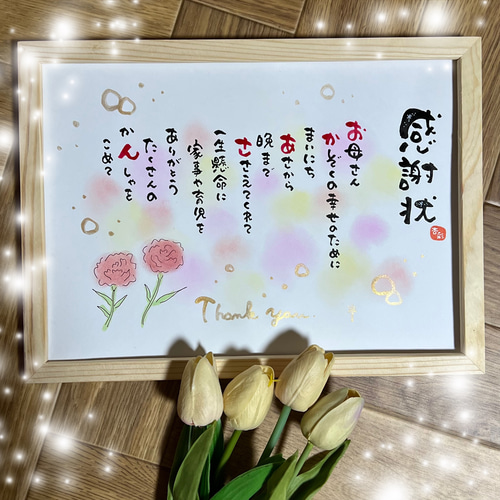 感謝状
お母さん
かぞくの幸せのために
まいにち
あさから
晩まで
ささえてくれて
一生懸命に
家事や育児を
ありがとう
たくさんの
かんしゃを
こめて
Thank you